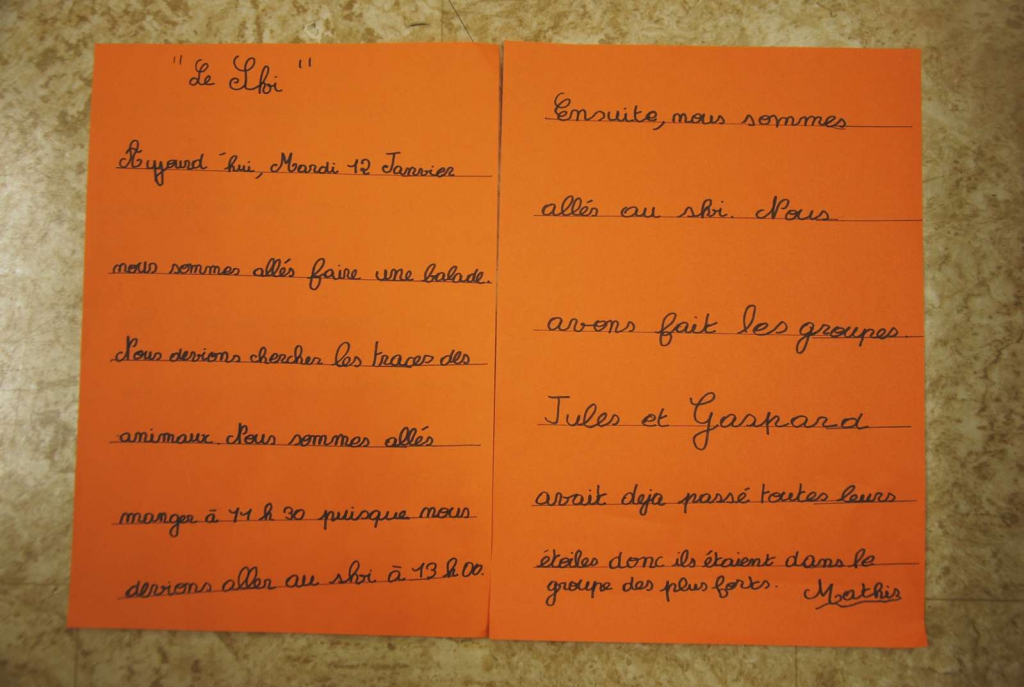 "Le Ski"
Aujourd'hui, Mardi 12 Janvier
nous sommes allés faire une balade.
Nous devions chercher les traces des
animaux. Nous sommes allés
manger à 11 h 30 puisque nous
devions aller au ski à 13 h 00.
Ensuite, nous sommes
allés au ski. Nous
avons fait les groupes.
Jules et Gaspard
avait deja passé toutes leurs
étoiles donc ils étaient dans le
groupe des plus forts. Mathis